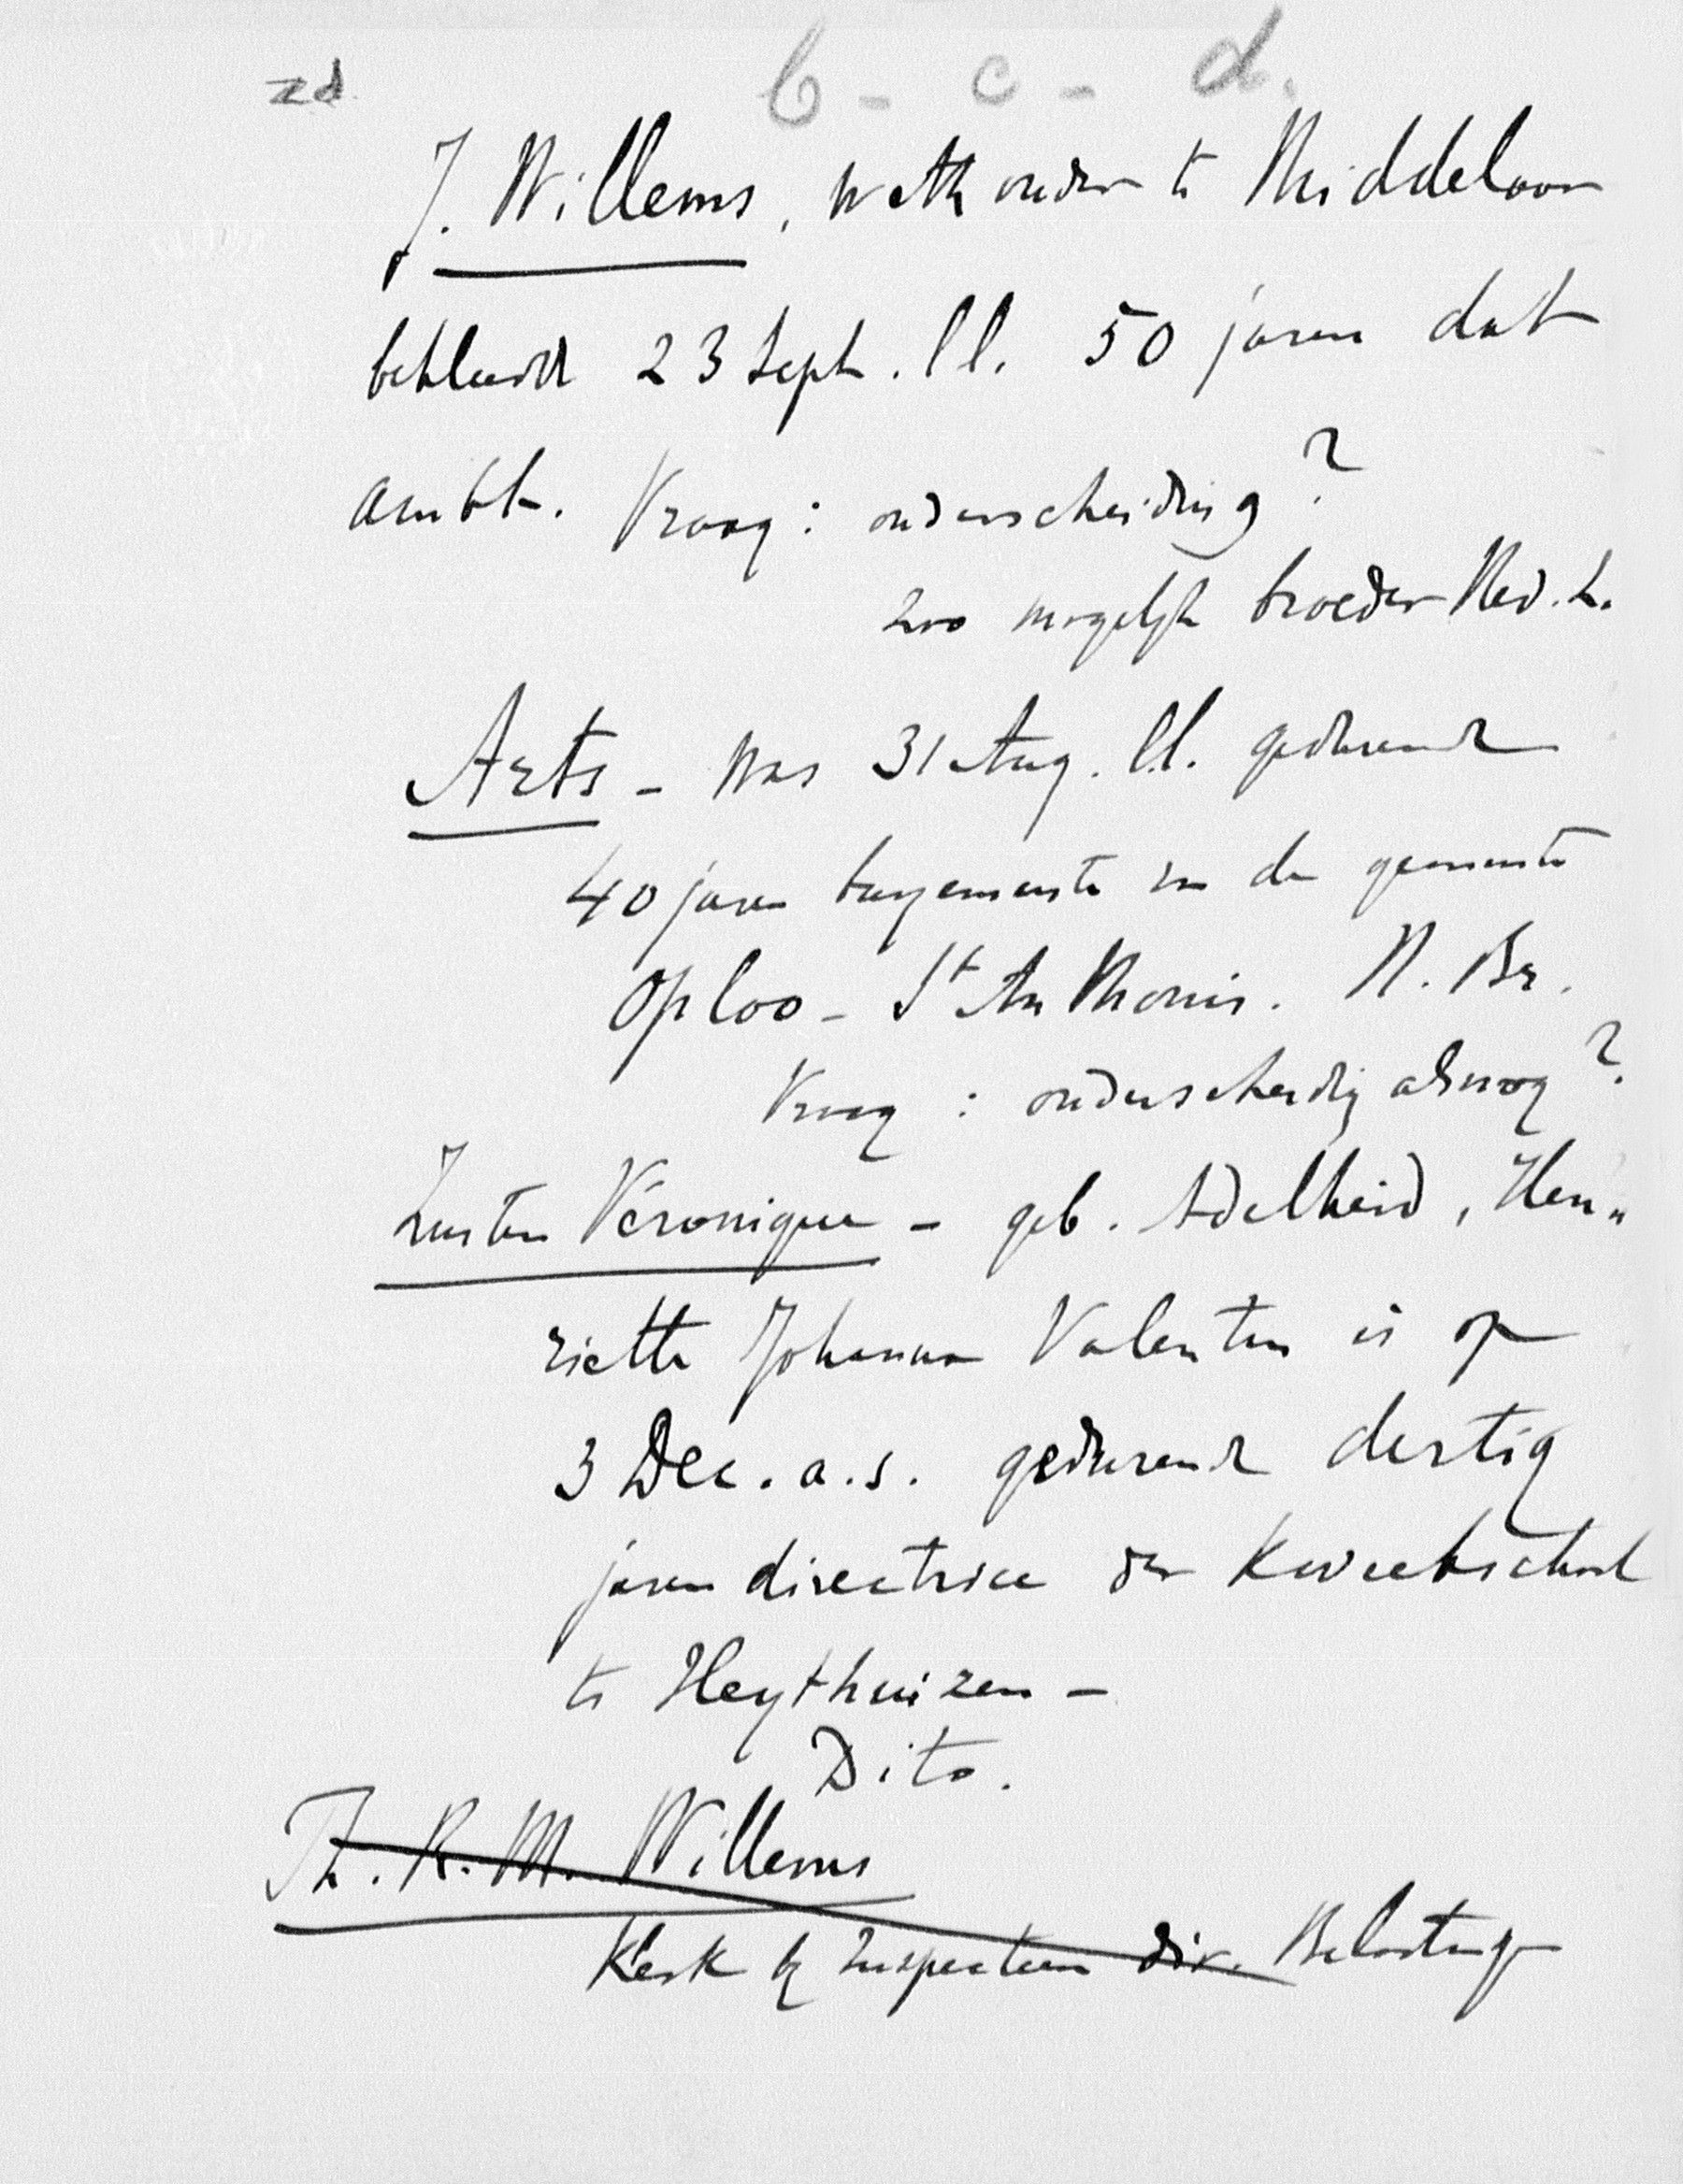 zd
b - c - d.
J. Willems, wethouder te Middelaar
bekleedt 23 Sept. ll. 50 jaren dat
ambt. Vraag: onderscheiding?
zoo mogelijk broeder Ned. L.
Arts - was 31 Aug. ll. gedurend
40 jaren burgemeester van de gemeente
Oploo - St Anthonis. N. Br.
Vraag: onderscheidig alsnog?
Zuster Véronique - geb. Adelheid, Hen„
riette Johanna Valentin is op
3 Dec. a.s. gedurend dertig
jaren directrice der Kweekschool
te Heythuizen -
Dito.
Th. R. M. Willems
Klerk bij Inspecteur dir. Belastingen